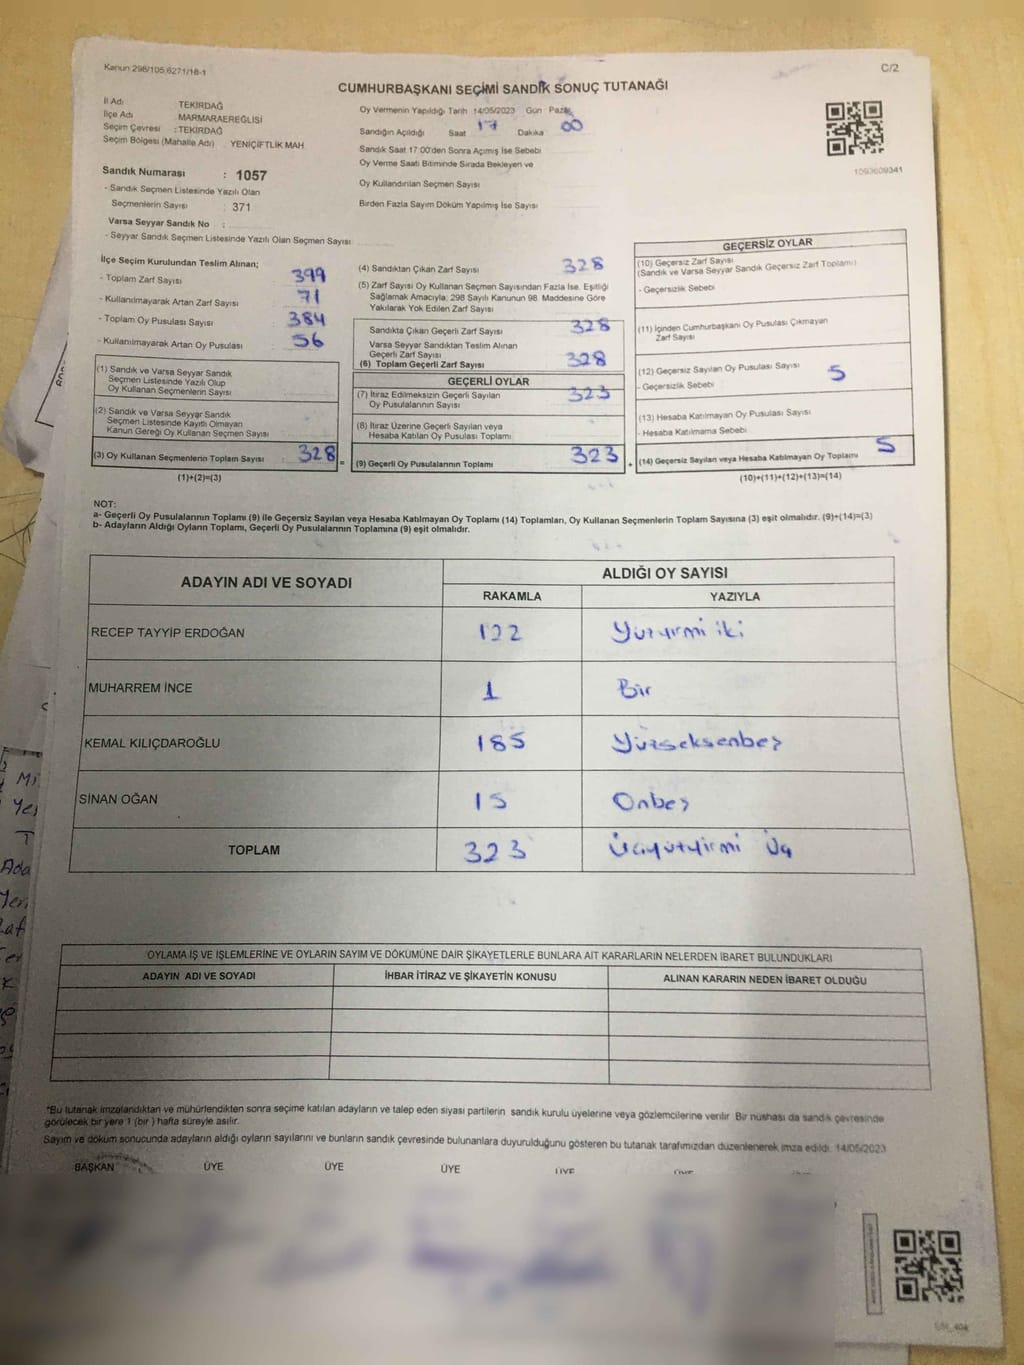 Kanun 298/105,6271/18-1
C/2
CUMHURBAŞKANI SEÇİMİ SANDIK SONUÇ TUTANAĞI
İl Adı TEKİRDAĞ
İlçe Adı MARMARAEREĞLİSİ
Seçim Çevresi : TEKİRDAĞ
Seçim Bölgesi (Mahalle Adı) YENİÇİFTLİK MAH.
Oy Vermenin Yapıldığı Tarih 14/05/2023 Gün Pazar
Sandığın Açıldığı Saat 17 Dakika 00
Sandık Saat 17:00'den Sonra Açımış İse Sebebi
Oy Verme Saati Bitiminde Sırada Bekleyen ve
Oy Kullandırılan Seçmen Sayısı
Birden Fazla Sayım Döküm Yapılmış İse Sayısı
1093609341
Sandık Numarası : 1057
- Sandık Seçmen Listesinde Yazılı Olan
Seçmenlerin Sayısı : 371
Varsa Seyyar Sandık No :
- Seyyar Sandık Seçmen Listesinde Yazılı Olan Seçmen Sayısı
İlçe Seçim Kurulundan Teslim Alınan;
- Toplam Zarf Sayısı 399
- Kullanılmayarak Artan Zarf Sayısı 71
- Toplam Oy Pusulası Sayısı 384
- Kullanılmayarak Artan Oy Pusulası 56
(1) Sandık ve Varsa Seyyar Sandık
Seçmen Listesinde Yazılı Olup
Oy Kullanan Seçmenlerin Sayısı
(2) Sandık ve Varsa Seyyar Sandık
Seçmen Listesinde Kayıtlı Olmayan
Kanun Gereği Oy Kullanan Seçmen Sayısı
(3) Oy Kullanan Seçmenlerin Toplam Sayısı : 328 =
(1)+(2)=(3)
(4) Sandıktan Çıkan Zarf Sayısı 328
(5) Zarf Sayısı Oy Kullanan Seçmen Sayısından Fazla İse, Eşitliği
Sağlamak Amacıyla; 298 Sayılı Kanunun 98. Maddesine Göre
Yakılarak Yok Edilen Zarf Sayısı
Sandıkta Çıkan Geçerli Zarf Sayısı 328
Varsa Seyyar Sandıktan Teslim Alınan
Geçerli Zarf Sayısı
(6) Toplam Geçerli Zarf Sayısı 328
GEÇERLİ OYLAR
(7) İtiraz Edilmeksizin Geçerli Sayılan
Oy Pusulalarının Sayısı 323
(8) İtiraz Üzerine Geçerli Sayılan veya
Hesaba Katılan Oy Pusulası Toplamı
(9) Geçerli Oy Pusulalarının Toplamı 323 +
GEÇERSİZ OYLAR
(10) Geçersiz Zarf Sayısı
(Sandık ve Varsa Seyyar Sandık Geçersiz Zarf Toplamı)
- Geçersizlik Sebebi
(11) İçinden Cumhurbaşkanı Oy Pusulası Çıkmayan
Zarf Sayısı
(12) Geçersiz Sayılan Oy Pusulası Sayısı 5
- Geçersizlik Sebebi
(13) Hesaba Katılmayan Oy Pusulası Sayısı
- Hesaba Katılmama Sebebi
(14) Geçersiz Sayılan veya Hesaba Katılmayan Oy Toplamı 5
(10)+(11)+(12)+(13)=(14)
NOT:
a- Geçerli Oy Pusulalarının Toplamı (9) ile Geçersiz Sayılan veya Hesaba Katılmayan Oy Toplamı (14) Toplamları, Oy Kullanan Seçmenlerin Toplam Sayısına (3) eşit olmalıdır. (9)+(14)=(3)
b- Adayların Aldığı Oyların Toplamı, Geçerli Oy Pusulalarının Toplamına (9) eşit olmalıdır.
ADAYIN ADI VE SOYADI ALDIĞI OY SAYISI
RAKAMLA YAZIYLA
RECEP TAYYİP ERDOĞAN 122 Yüzyirmi iki
MUHARREM İNCE 1 Bir
KEMAL KILIÇDAROĞLU 185 Yüzseksenbeş
SİNAN OĞAN 15 Onbeş
TOPLAM 323 Üçyüzyirmi üç
OYLAMA İŞ VE İŞLEMLERİNE VE OYLARIN SAYIM VE DÖKÜMÜNE DAİR ŞİKAYETLERLE BUNLARA AİT KARARLARIN NELERDEN İBARET BULUNDUKLARI
ADAYIN ADI VE SOYADI İHBAR İTİRAZ VE ŞİKAYETİN KONUSU ALINAN KARARIN NEDEN İBARET OLDUĞU
*Bu tutanak imzalandıktan ve mühürlendikten sonra seçime katılan adayların ve talep eden siyasi partilerin sandık kurulu üyelerine veya gözlemcilerine verilir. Bir nüshası da sandık çevresinde
görülecek bir yere 1 (bir) hafta süreyle asılır.
Sayım ve döküm sonucunda adayların aldığı oyların sayılarını ve bunların sandık çevresinde bulunanlara duyurulduğunu gösteren bu tutanak tarafımızdan düzenlenerek imza edildi. 14/05/2023
BAŞKAN ÜYE ÜYE ÜYE ÜYE ÜYE